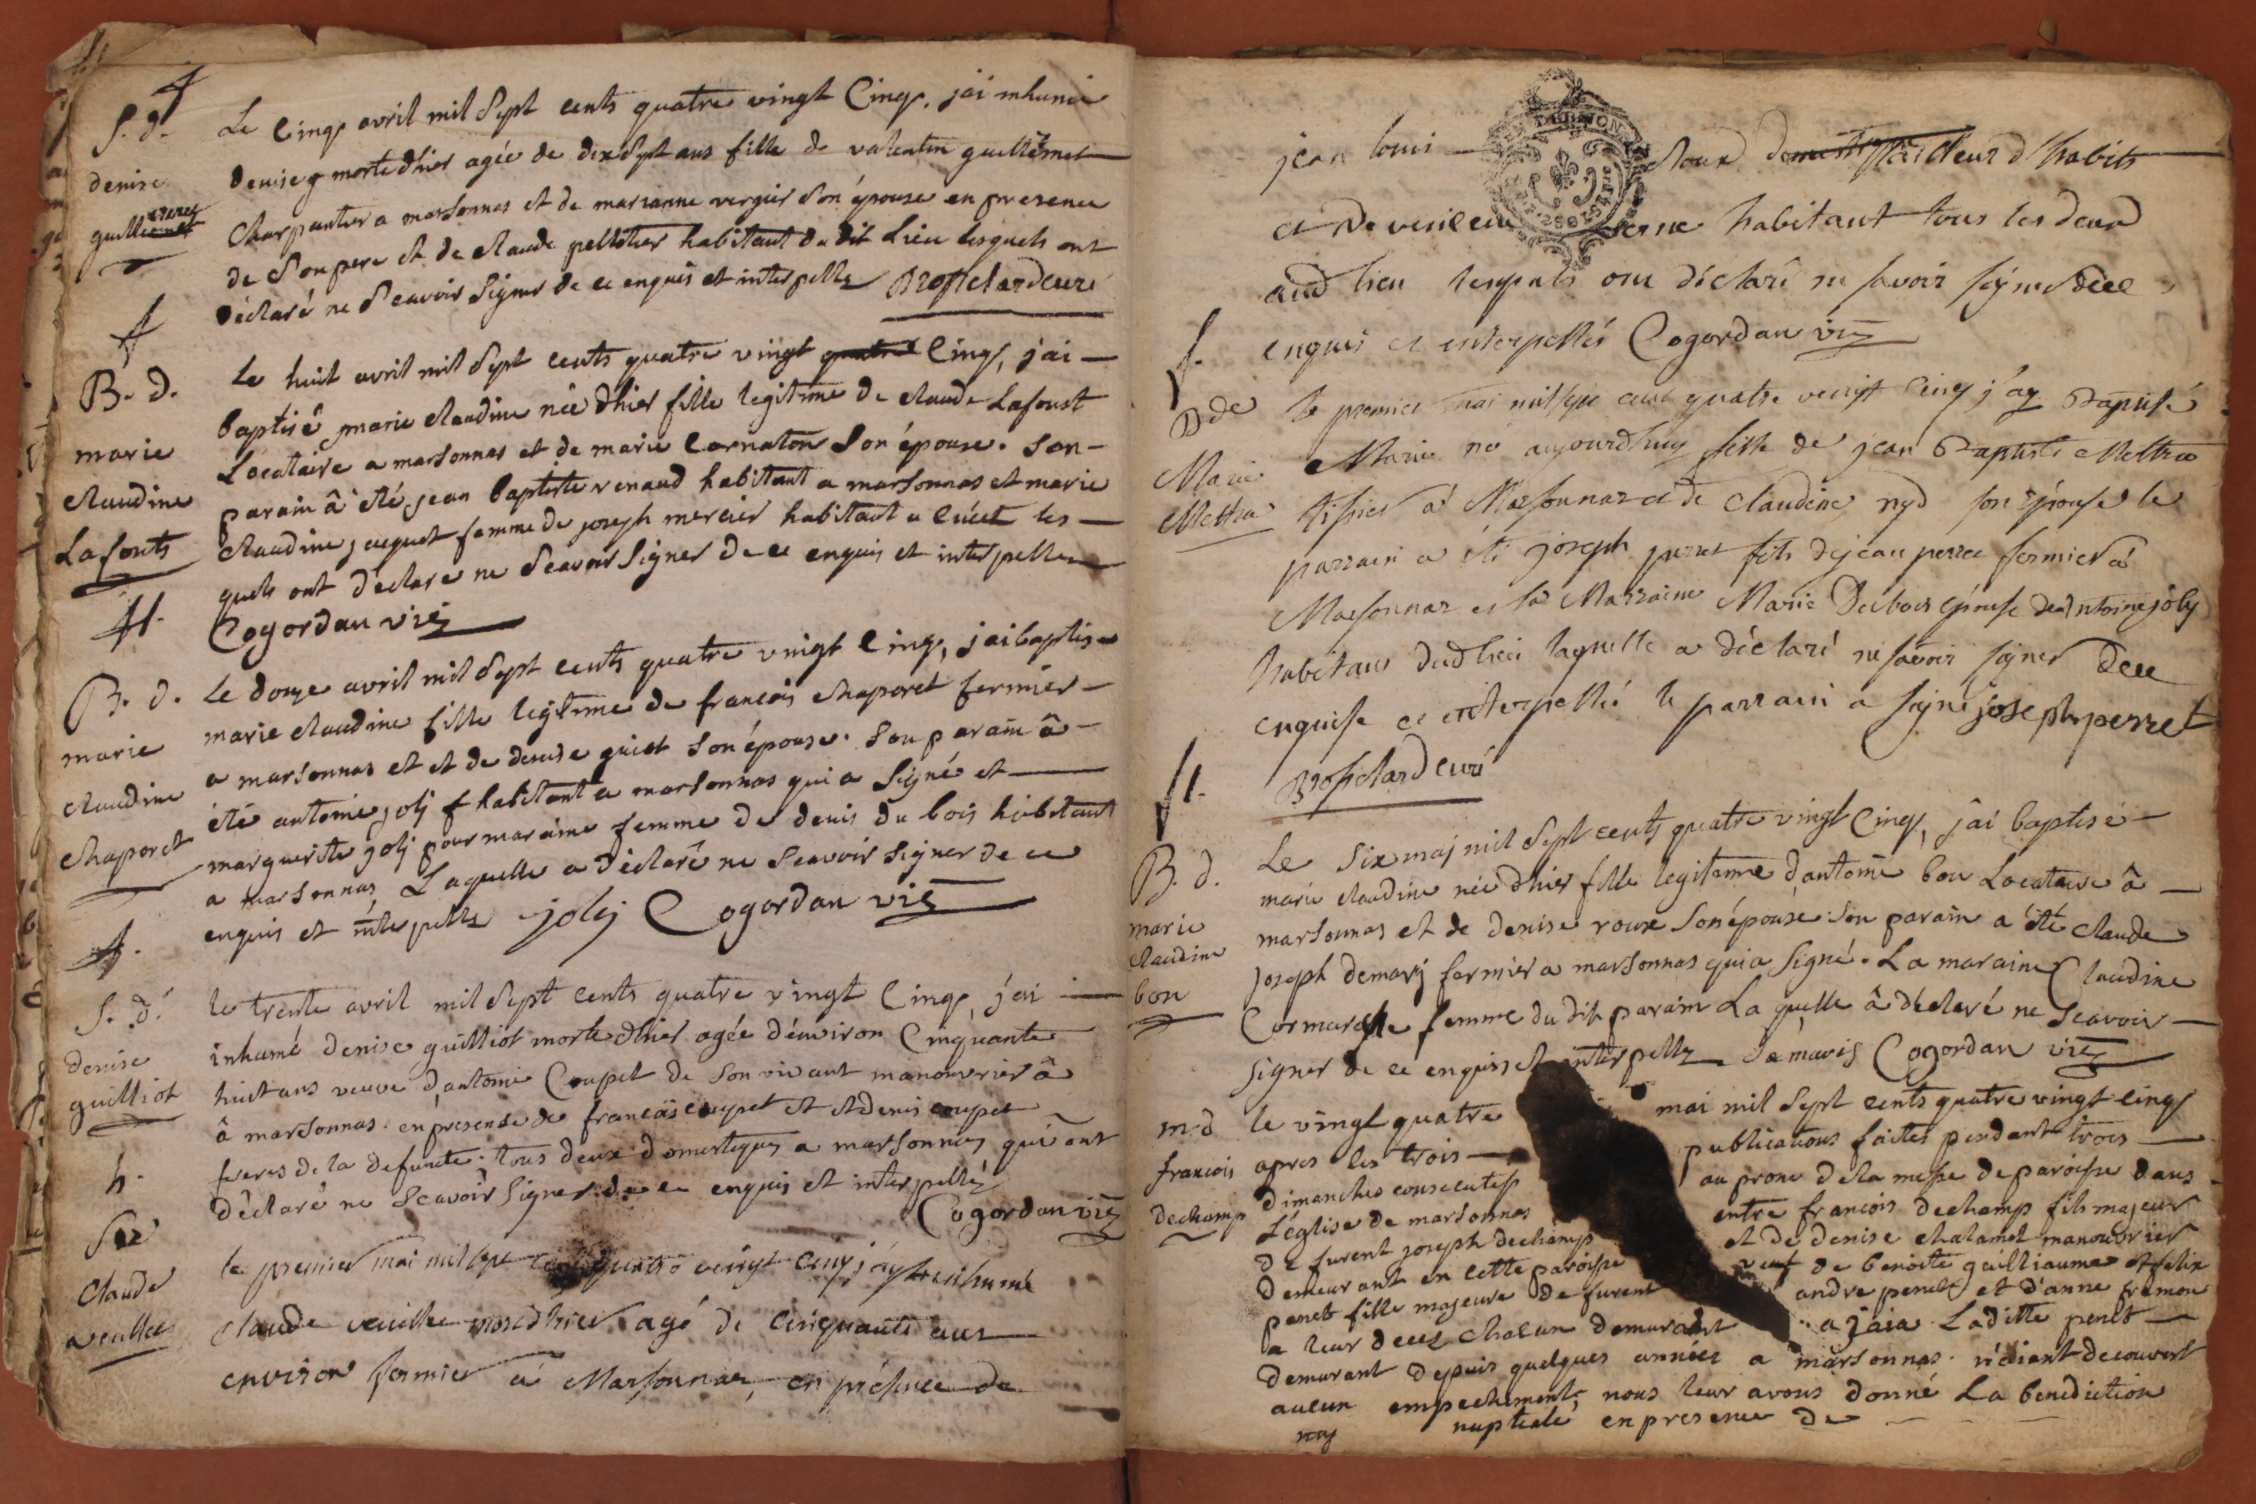 S. d.
denise
guillermet
Le Cinq avril mil Sept cents quatre vingt Cinq, jai inhumé
denise morte d'hier agée de dix Sept ans fille de valentin guillermet
Charpantier a marsonnas et de marianne vergier Son épouse en presence
de Son pere et de claude pelletier habitant du dit Lieu lesquels ont
déclaré ne Scavoir Signer de ce enquis et interpellz Brossard Curé
B. d.
marie
claudine
Lafonts
Le huit avril mil Sept cents quatre vingt quatre Cinq, j'ai
baptisé marie claudine née d'hier fille legitime de claude Lafonst
Locataire a marsonnas et de marie Cornaton Son épouse. Son
parain â été jean baptiste renaud habitant a marsonnas et marie
claudine jacquet femme de joseph mercier habitant a les
quels ont déclaré ne Scavoir Signer de ce enquis et interpellez
Cogordan vic
B. d.
marie
claudine
chaporet
Le douze avril mil Sept cents quatre vingt Cinq, j'ai baptisé
marie claudine fille legitime de francois chaporet fermier
a marsonnas et et de denise guiot Son épouse. Son parain â
été antoine joly habitant a marsonnas qui a Signé et
marguerite joly pour maraine femme de denis du bois habitant
a marsonnas Laquelle a déclaré ne Scavoir Signer de ce
enquis et interpellz joly Cogordan vic
S. d.
denise
guilliot
le trente avril mil Sept cents quatre vingt Cinq, j'ai
inhumé denise guilliot morte d'hier agée d'environ Cinquante
huit ans veuve d'antoine Coupet de Son vivant manouvrier â
â marsonnas. en presence de francois coupet et et denis coupet
freres de la defunte. tous deux domestiques a marsonnas qui ont
déclaré ne Scavoir Signer de ce enquis et interpellés
Cogordan vic
Claude
le premier mai mil sept cent quatre vingt cinq j'ay inhumé
claude mort d'hier agé de cinquante ans
environ fermier à Marsonnaz, en présence de
jean louis tailleur d'habits
et de habitant tous les deux
aud lieu lesquels ont déclaré ne savoir signer de ce
enquis et interpellés Cogordan vic
B de
Marie
Mettra
le premier mai mil sept cent quatre vingt cinq j'ay Baptisé
Marie né aujourdhuy fille de jean Baptiste Mettra
tissier à Marsonnaz et de Claudine nyd son épouse le
parrain a été joseph perret fils de jean perret fermier à
Marsonnaz et la Marraine Marie Dubois épouse de antoine joly
habitans dud lieu laquelle a déclaré ne savoir signer de ce
enquise et interpellé le parrain a signé joseph perret
Brossard Curé
B. d.
marie
claudine
bon
Le Six may mil Sept cents quatre vingt Cinq, j'ai baptisé
marie claudine née d'hier fille legitime d'antoine bon Locataire â
marsonnas et de denise roux Son épouse Son parain a été claude
joseph demary fermier a marsonnas qui a Signé. La maraine Claudine
Cormarche femme du dit parain La quelle â déclaré ne Scavoir
Signer de ce enquis et interpellz Cogordan vic
m. d
francois
dechamp
le vingt quatre mai mil Sept cents quatre vingt cinq
apres les trois publications faites pendant trois
dimanches consecutifs au prone de la messe de paroisse dans
L'église de marsonnas entre francois dechamp fils majeur
de furent joseph dechamp et de denise chatanet manouvrier
demeurant en cette paroisse veuf de benoite guilliaume et felix
penet fille majeure de furent andre penet et d'anne fremon
a leur deces chacun demurant a jaia. Laditte penet
demurant depuis quelques années a marsonnas. n'étiant decouvert
aucun empechement, nous leur avons donné La benediction
nuptiale en presence de